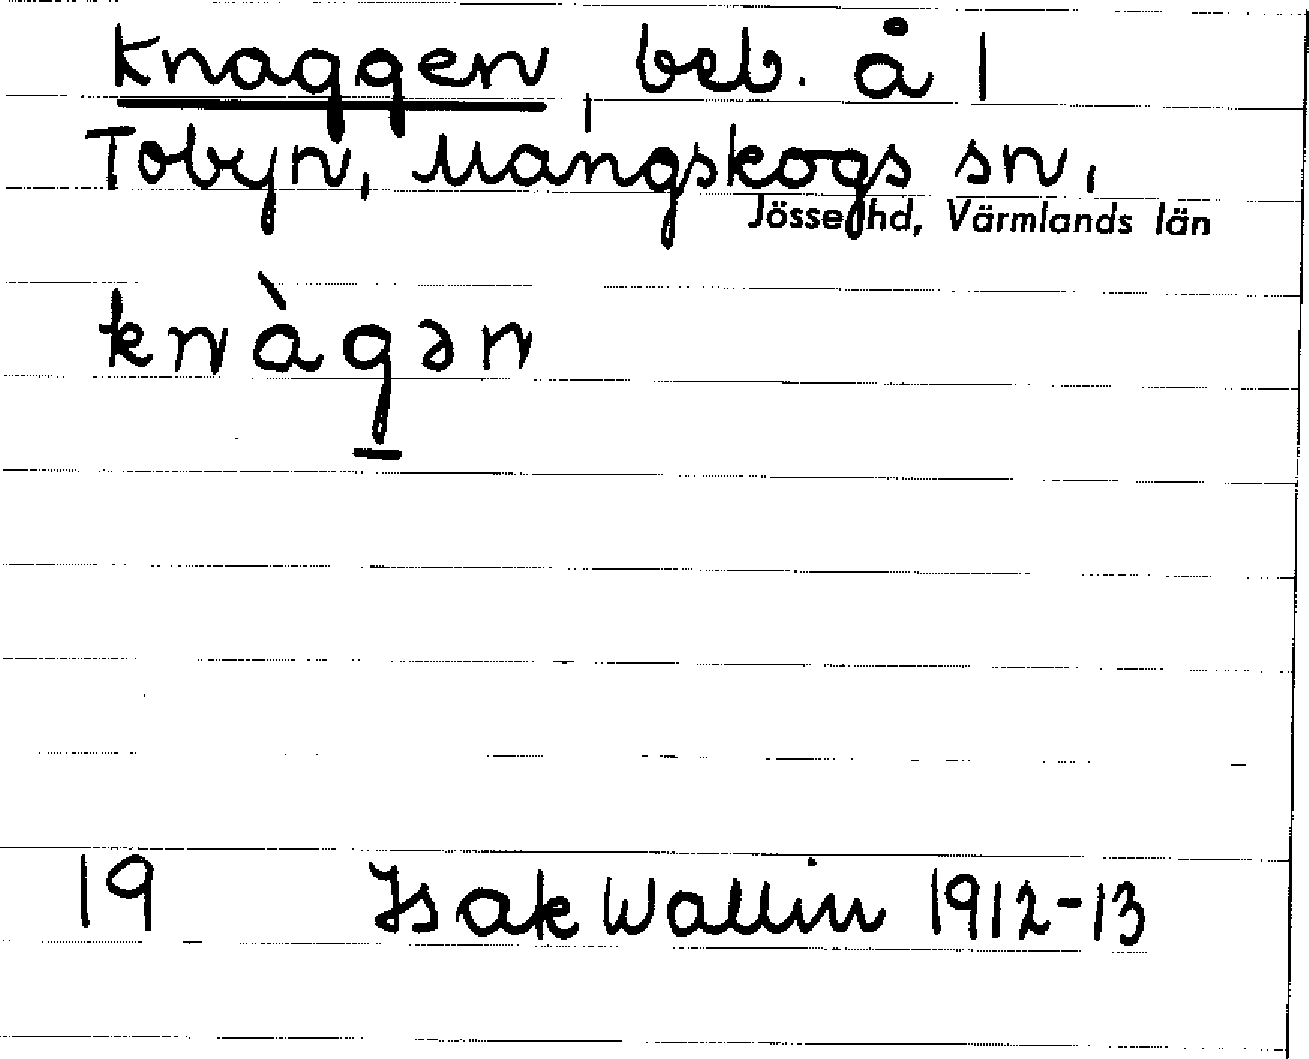 Knaggen, beb. å 1
Tobyn, Mangskogs sn,
Jösse hd, Värmlands län
knàgən
19 Isak Wallin 1912-13